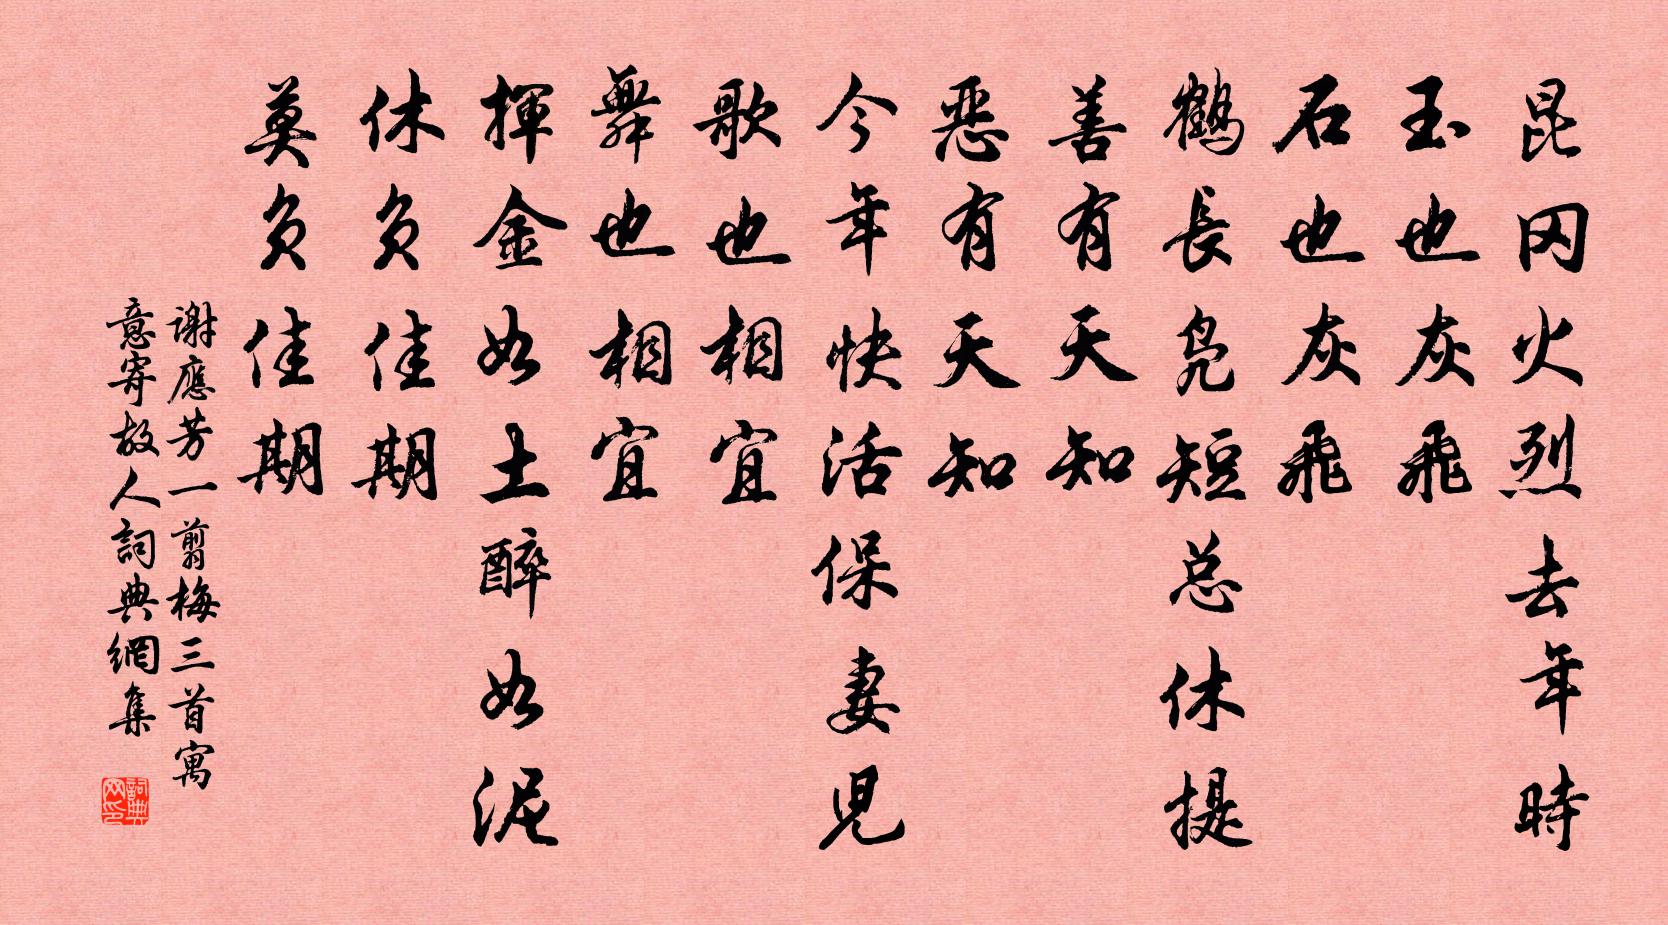 昆冈火烈去年時
玉也灰飛
石也灰飛
鶴長凫短总休提
善有天知
惡有天知
今年快活保妻児
歌也相宜
舞也相宜
揮金如土醉如泥
休负佳期
莫负佳期
谢應芳一剪梅三首寓
意寄故人詞典網集
詞典网印